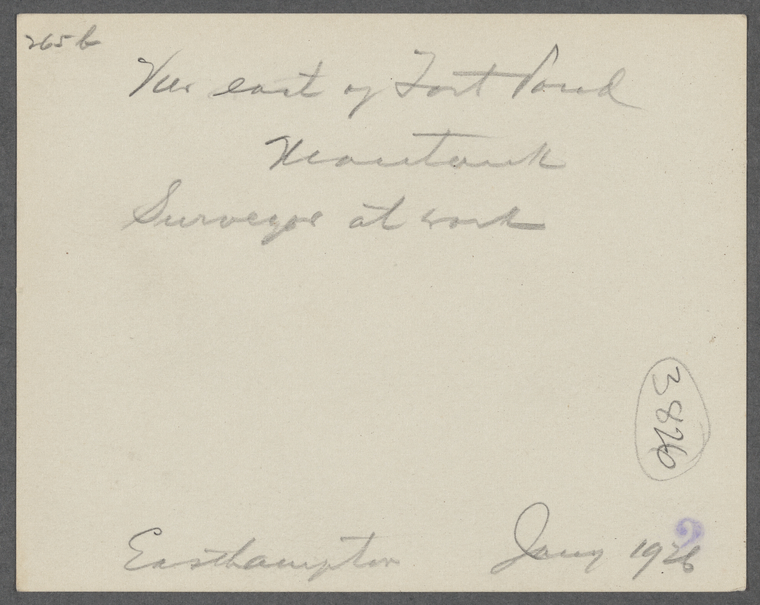 265 b
Vew east of Fort Pond
Montauk
Surveyor at work
3826
Easthampton Jany 1926
2